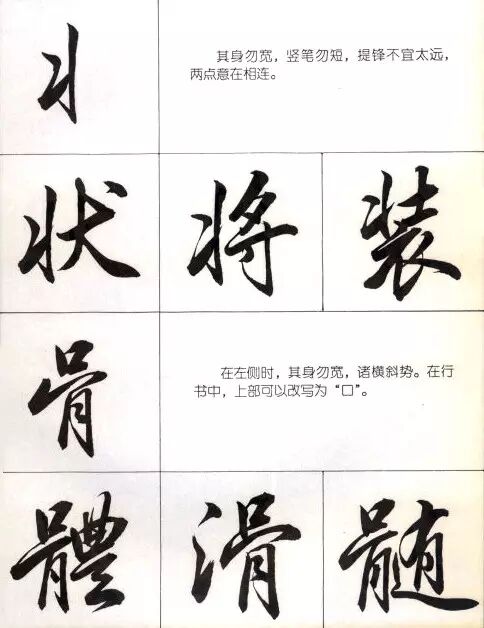 丬
其身勿宽，竖笔勿短，提锋不宜太远，
两点意在相连。
状 将 装
骨
在左侧时，其身勿宽，诸横斜势。在行
书中，上部可以改写为“口”。
體 滑 髓